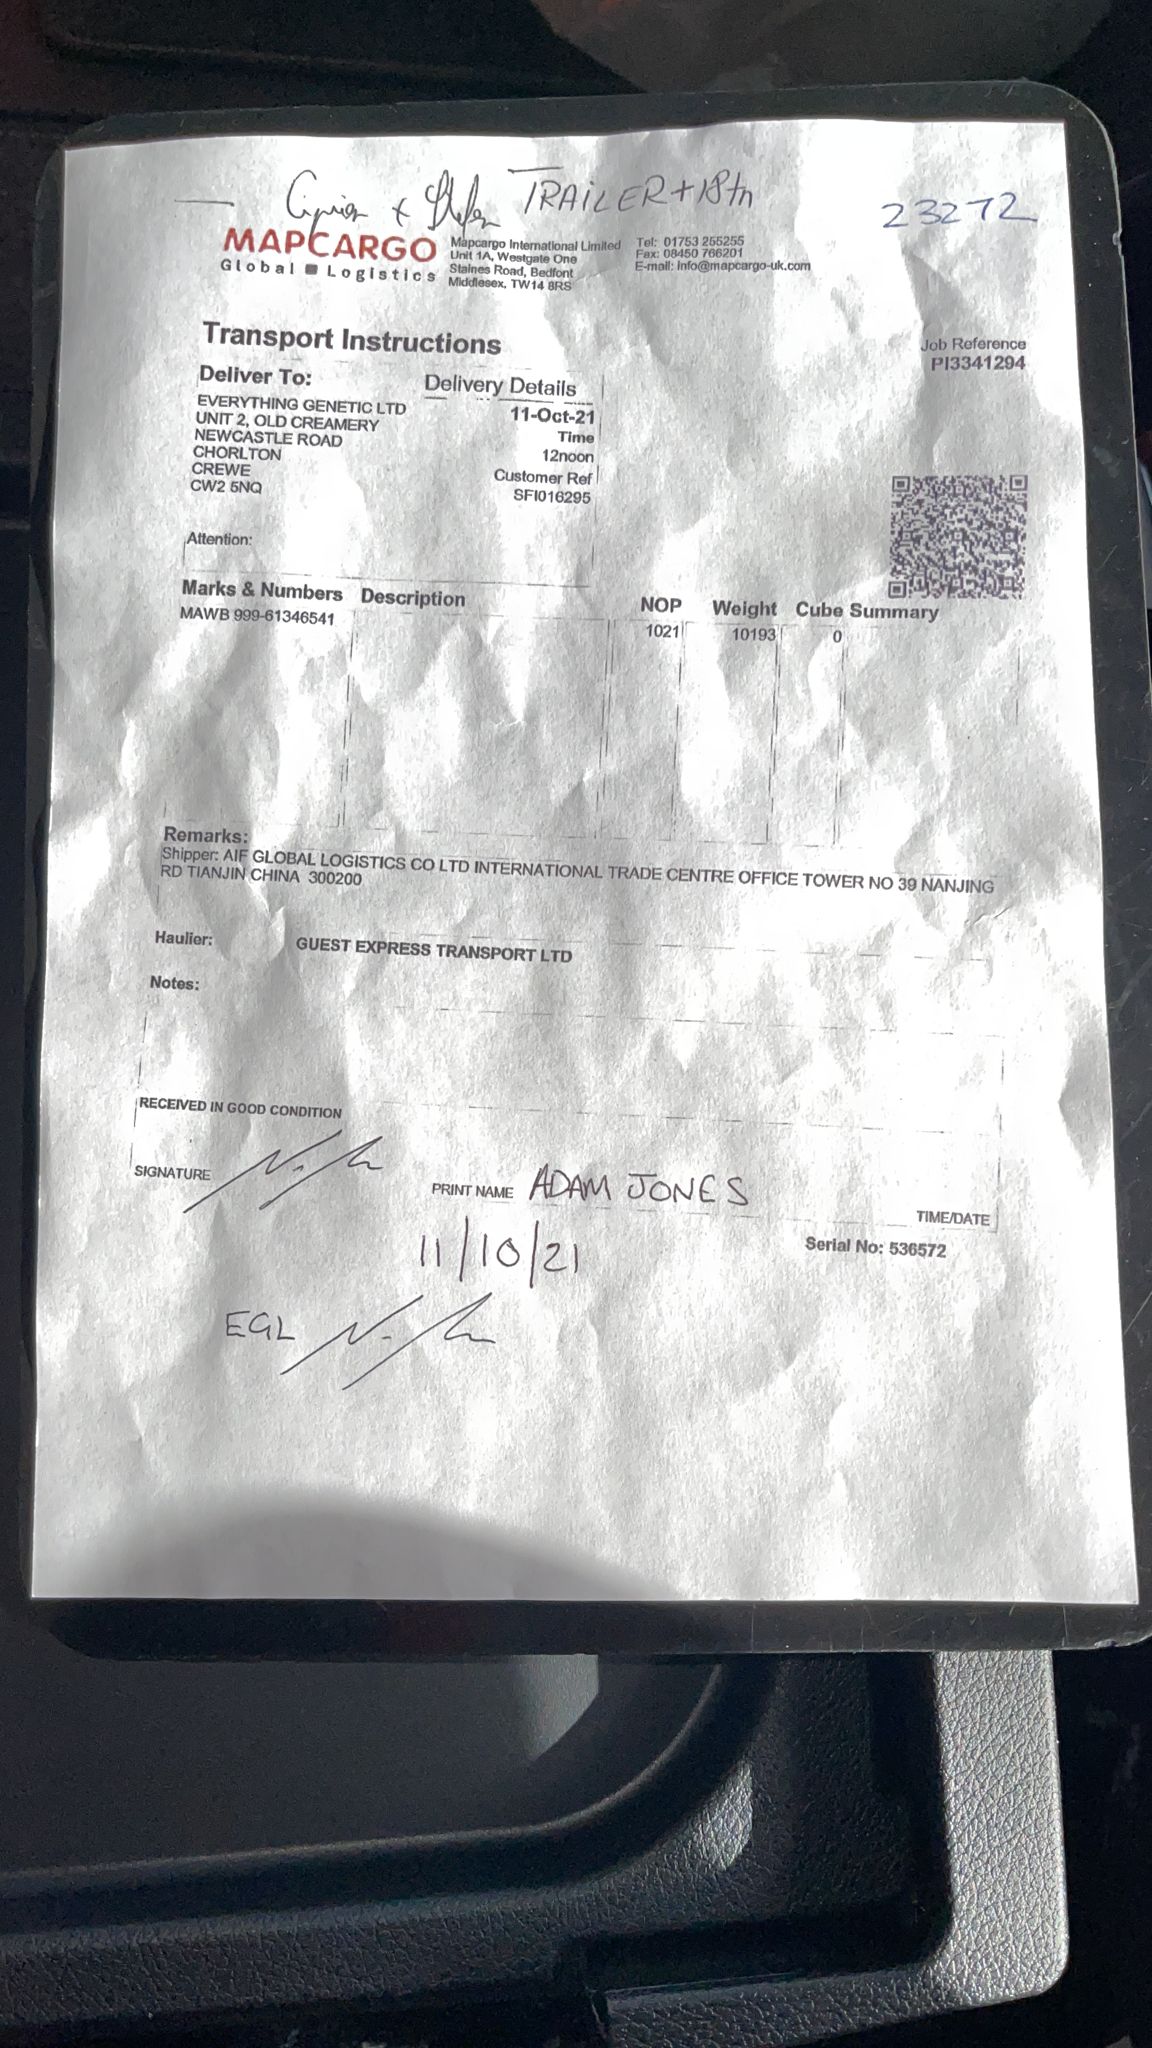 Ciprian + Stefan TRAILER + 18tn
23272
MAPCARGO
Global Logistics
Mapcargo International Limited
Unit 1A, Westgate One
Staines Road, Bedfont
Middlesex, TW14 8RS
Tel: 01753 255255
Fax: 08450 766201
E-mail: info@mapcargo-uk.com
Transport Instructions
Job Reference
PI3341294
Deliver To:
EVERYTHING GENETIC LTD
UNIT 2, OLD CREAMERY
NEWCASTLE ROAD
CHORLTON
CREWE
CW2 5NQ
Delivery Details
11-Oct-21
Time
12noon
Customer Ref
SFI016295
Attention:
Marks & Numbers Description NOP Weight Cube Summary
MAWB 999-61346541 1021 10193 0
Remarks:
Shipper: AIF GLOBAL LOGISTICS CO LTD INTERNATIONAL TRADE CENTRE OFFICE TOWER NO 39 NANJING
RD TIANJIN CHINA 300200
Haulier: GUEST EXPRESS TRANSPORT LTD
Notes:
RECEIVED IN GOOD CONDITION
SIGNATURE PRINT NAME ADAM JONES TIME/DATE
11/10/21
Serial No: 536572
EGL